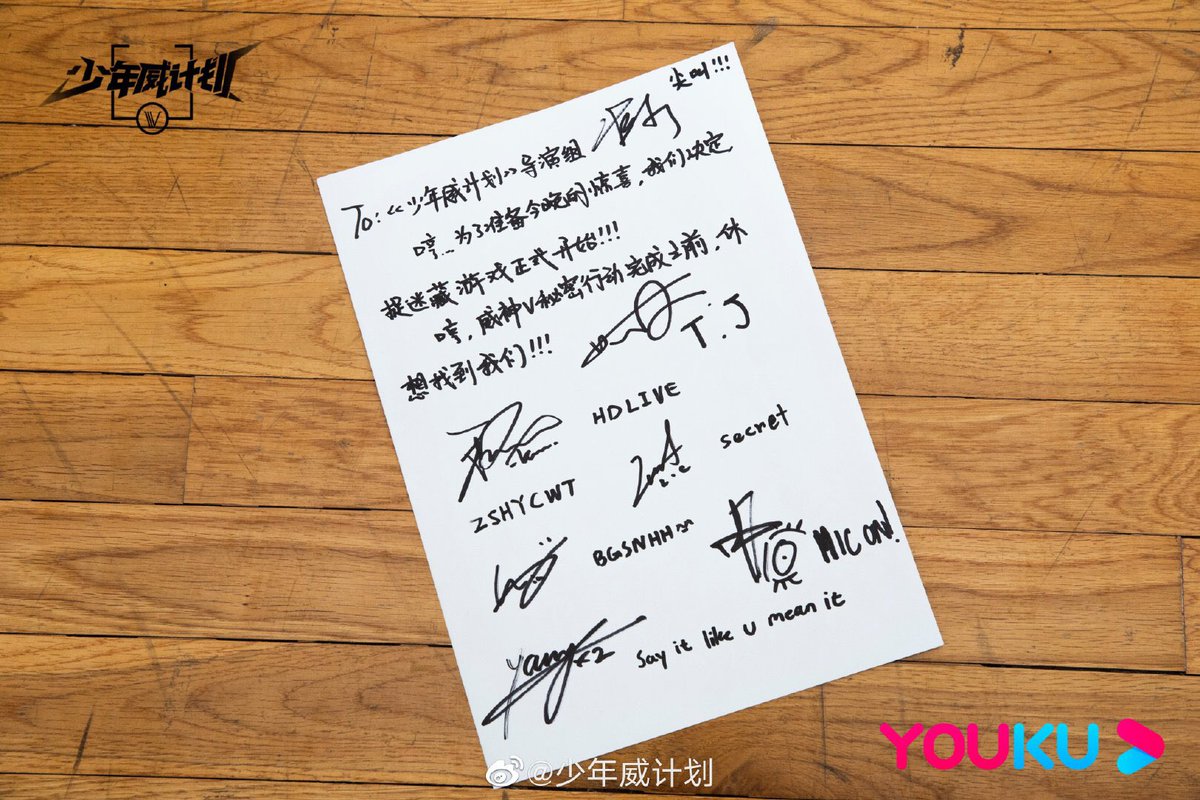 少年威计划
尖叫!!!
To:《少年威计划》导演组
哼...为了准备今晚的惊喜,我们决定
捉迷藏游戏正式开始!!!
哼,威神V秘密行动完成之前,休
想找到我们!!!
T.J
HDLIVE
secret
ZSHYCWT
BGSNHH~
MIC ON!
yang x2
Say it like u mean it
@少年威计划
YOUKU